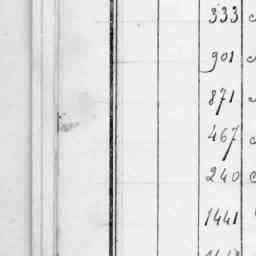 333
901
871
467
240
1441